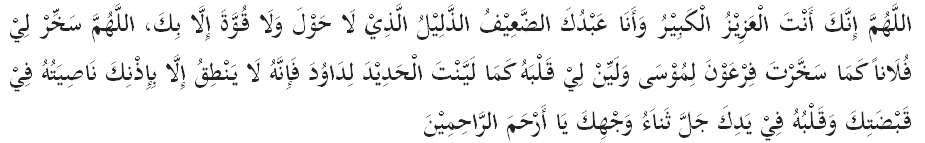 اللَّهُمَّ إِنَّكَ أَنْتَ الْعَزِيْزُ الْكَبِيْرُ وَأَنَا عَبْدُكَ الضَّعِيْفُ الذَّلِيْلُ الَّذِيْ لَا حَوْلَ وَلَا قُوَّةَ إِلَّا بِكَ، اللَّهُمَّ سَخِّرْ لِيْ
فُلَاناً كَمَا سَخَّرْتَ فِرْعَوْنَ لِمُوْسَى وَلَيِّنْ لِيْ قَلْبَهُ كَمَا لَيَّنْتَ الْحَدِيْدَ لِدَاوُدَ فَإِنَّهُ لَا يَنْطِقُ إِلَّا بِإِذْنِكَ نَاصِيَتُهُ فِيْ
قَبْضَتِكَ وَقَلْبُهُ فِيْ يَدِكَ جَلَّ ثَنَاءُ وَجْهِكَ يَا أَرْحَمَ الرَّاحِمِيْنَ